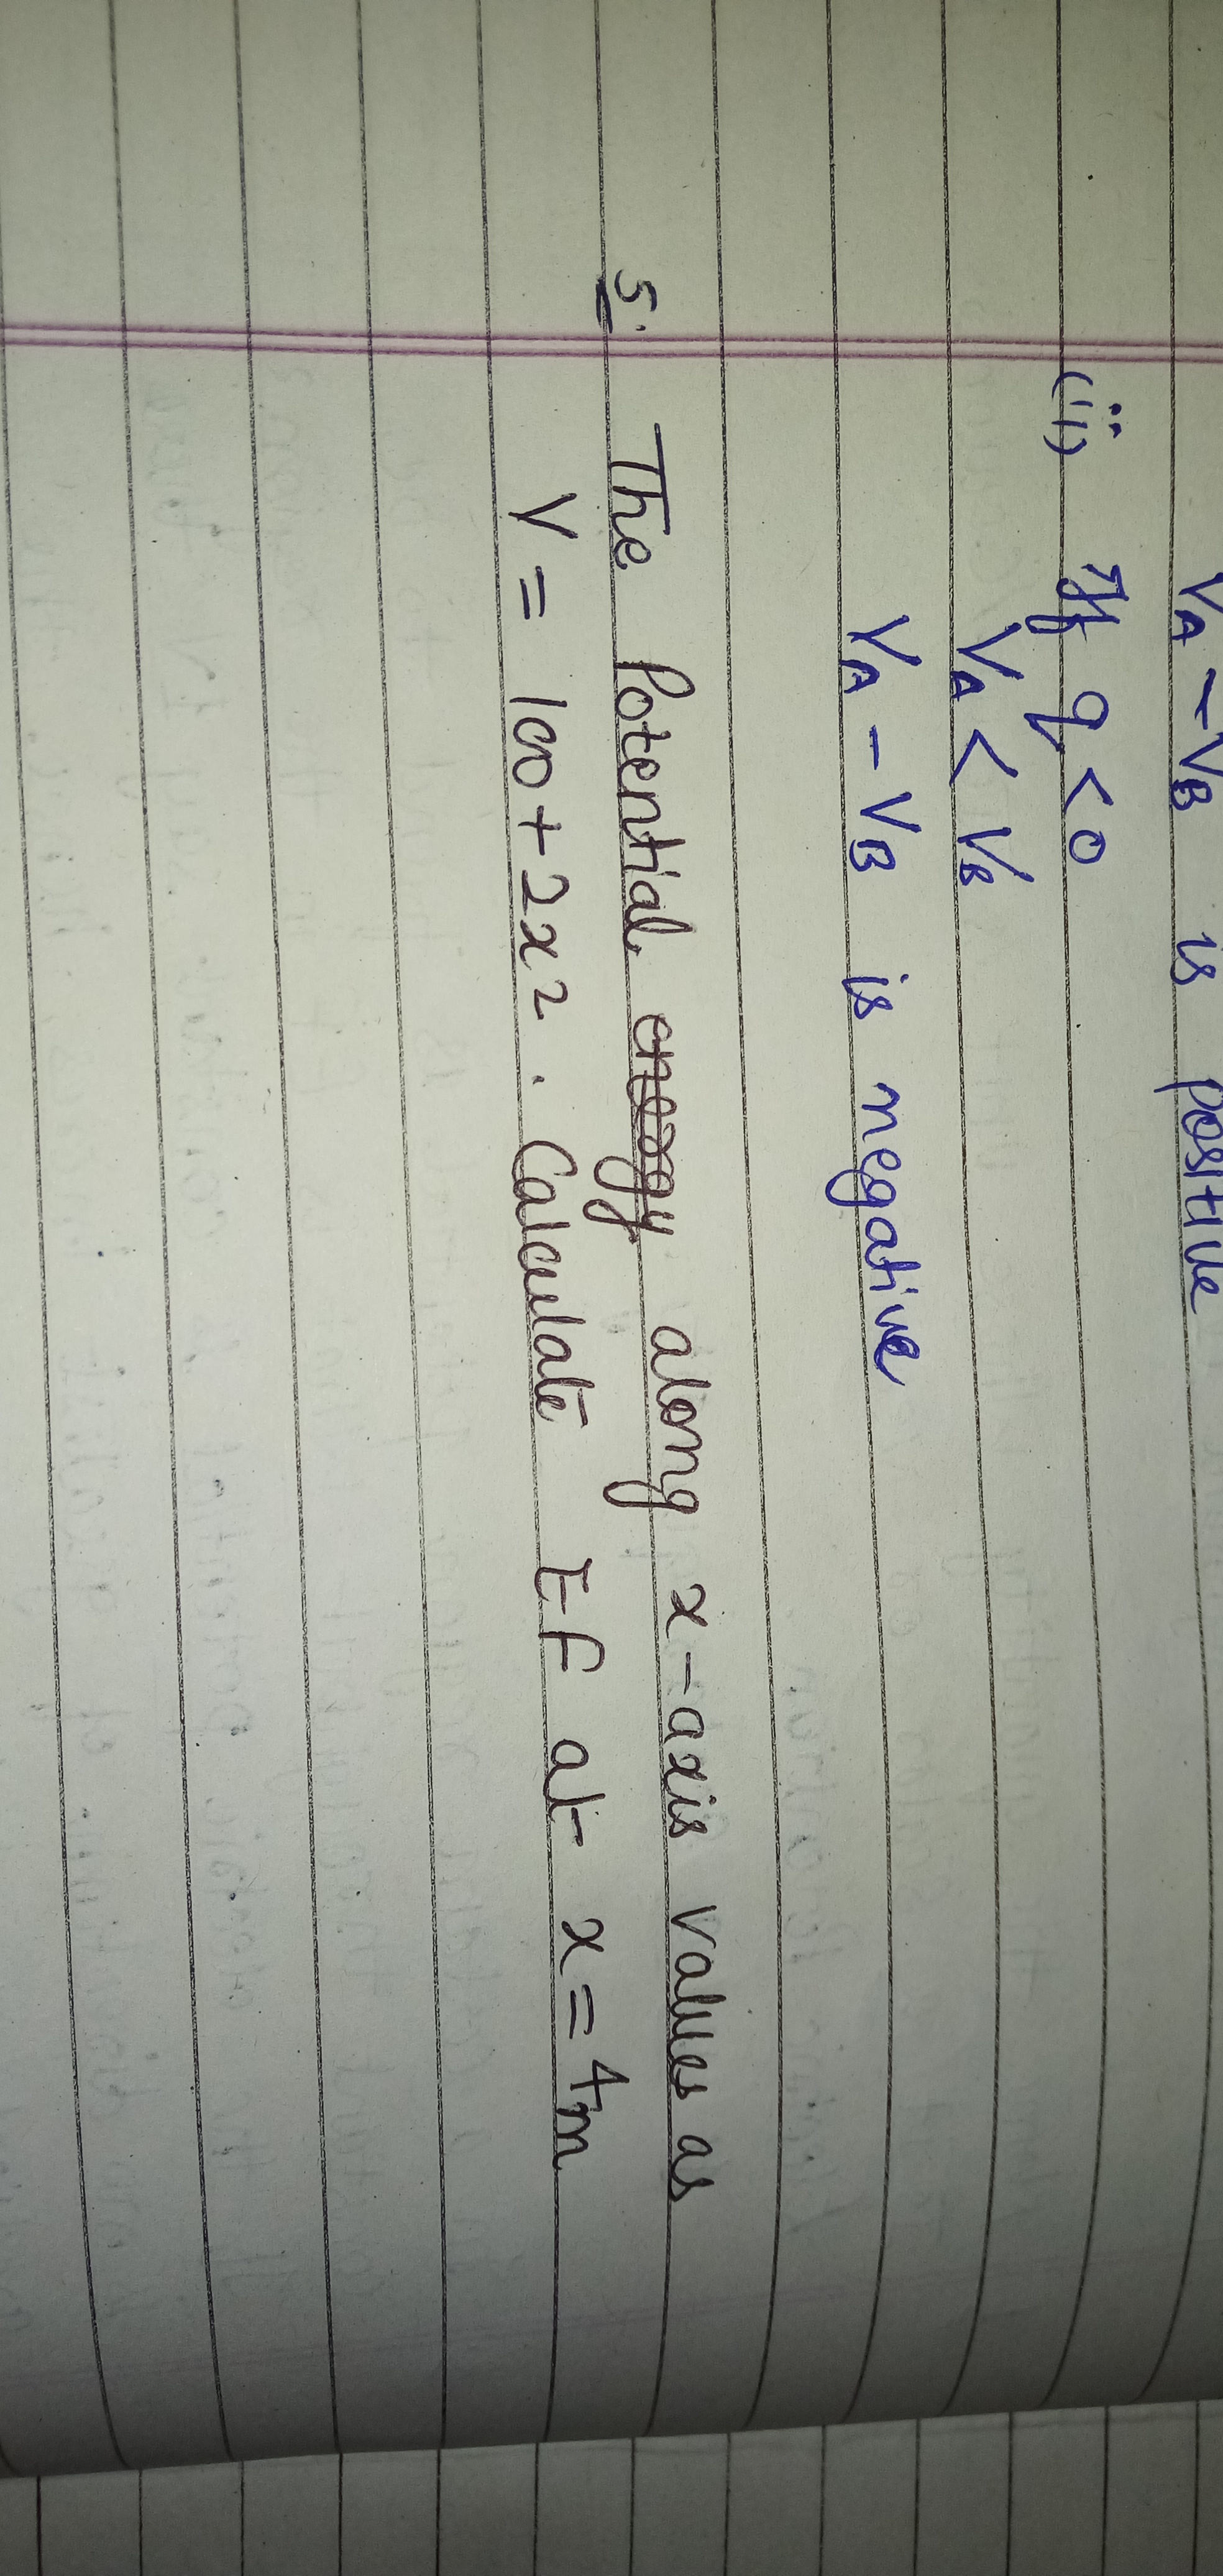 VA - VB is positive
(ii) If q < 0
VA < VB
VA - VB is negative
5. The Potential energy along x-axis values as
V = 100 + 2x². Calculate EF at x = 4m